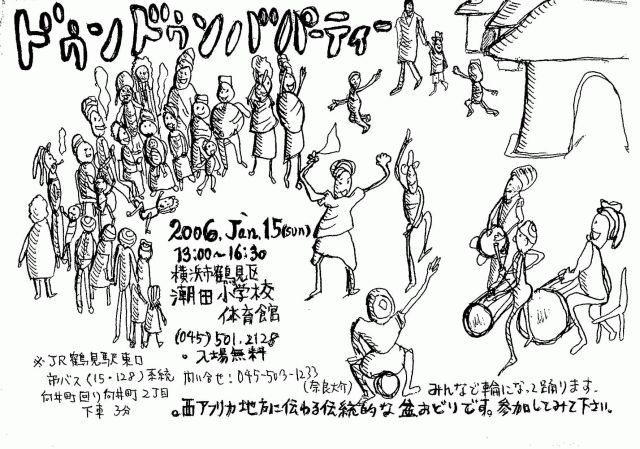 ドゥンドゥンバパーティー
2006. Jan. 15(sun)
13:00〜16:30
横浜市鶴見区
潮田小学校
体育館
(045) 501. 2128
。入場無料
※JR鶴見駅東口
市バス(15・128)系統
向井町回り向井町2丁目
下車 3分
問い合せ：045-503-1233
(奈良大介)
みんなで輪になって踊ります。
。西アフリカ地方に伝わる伝統的な盆おどりです。参加してみて下さい。